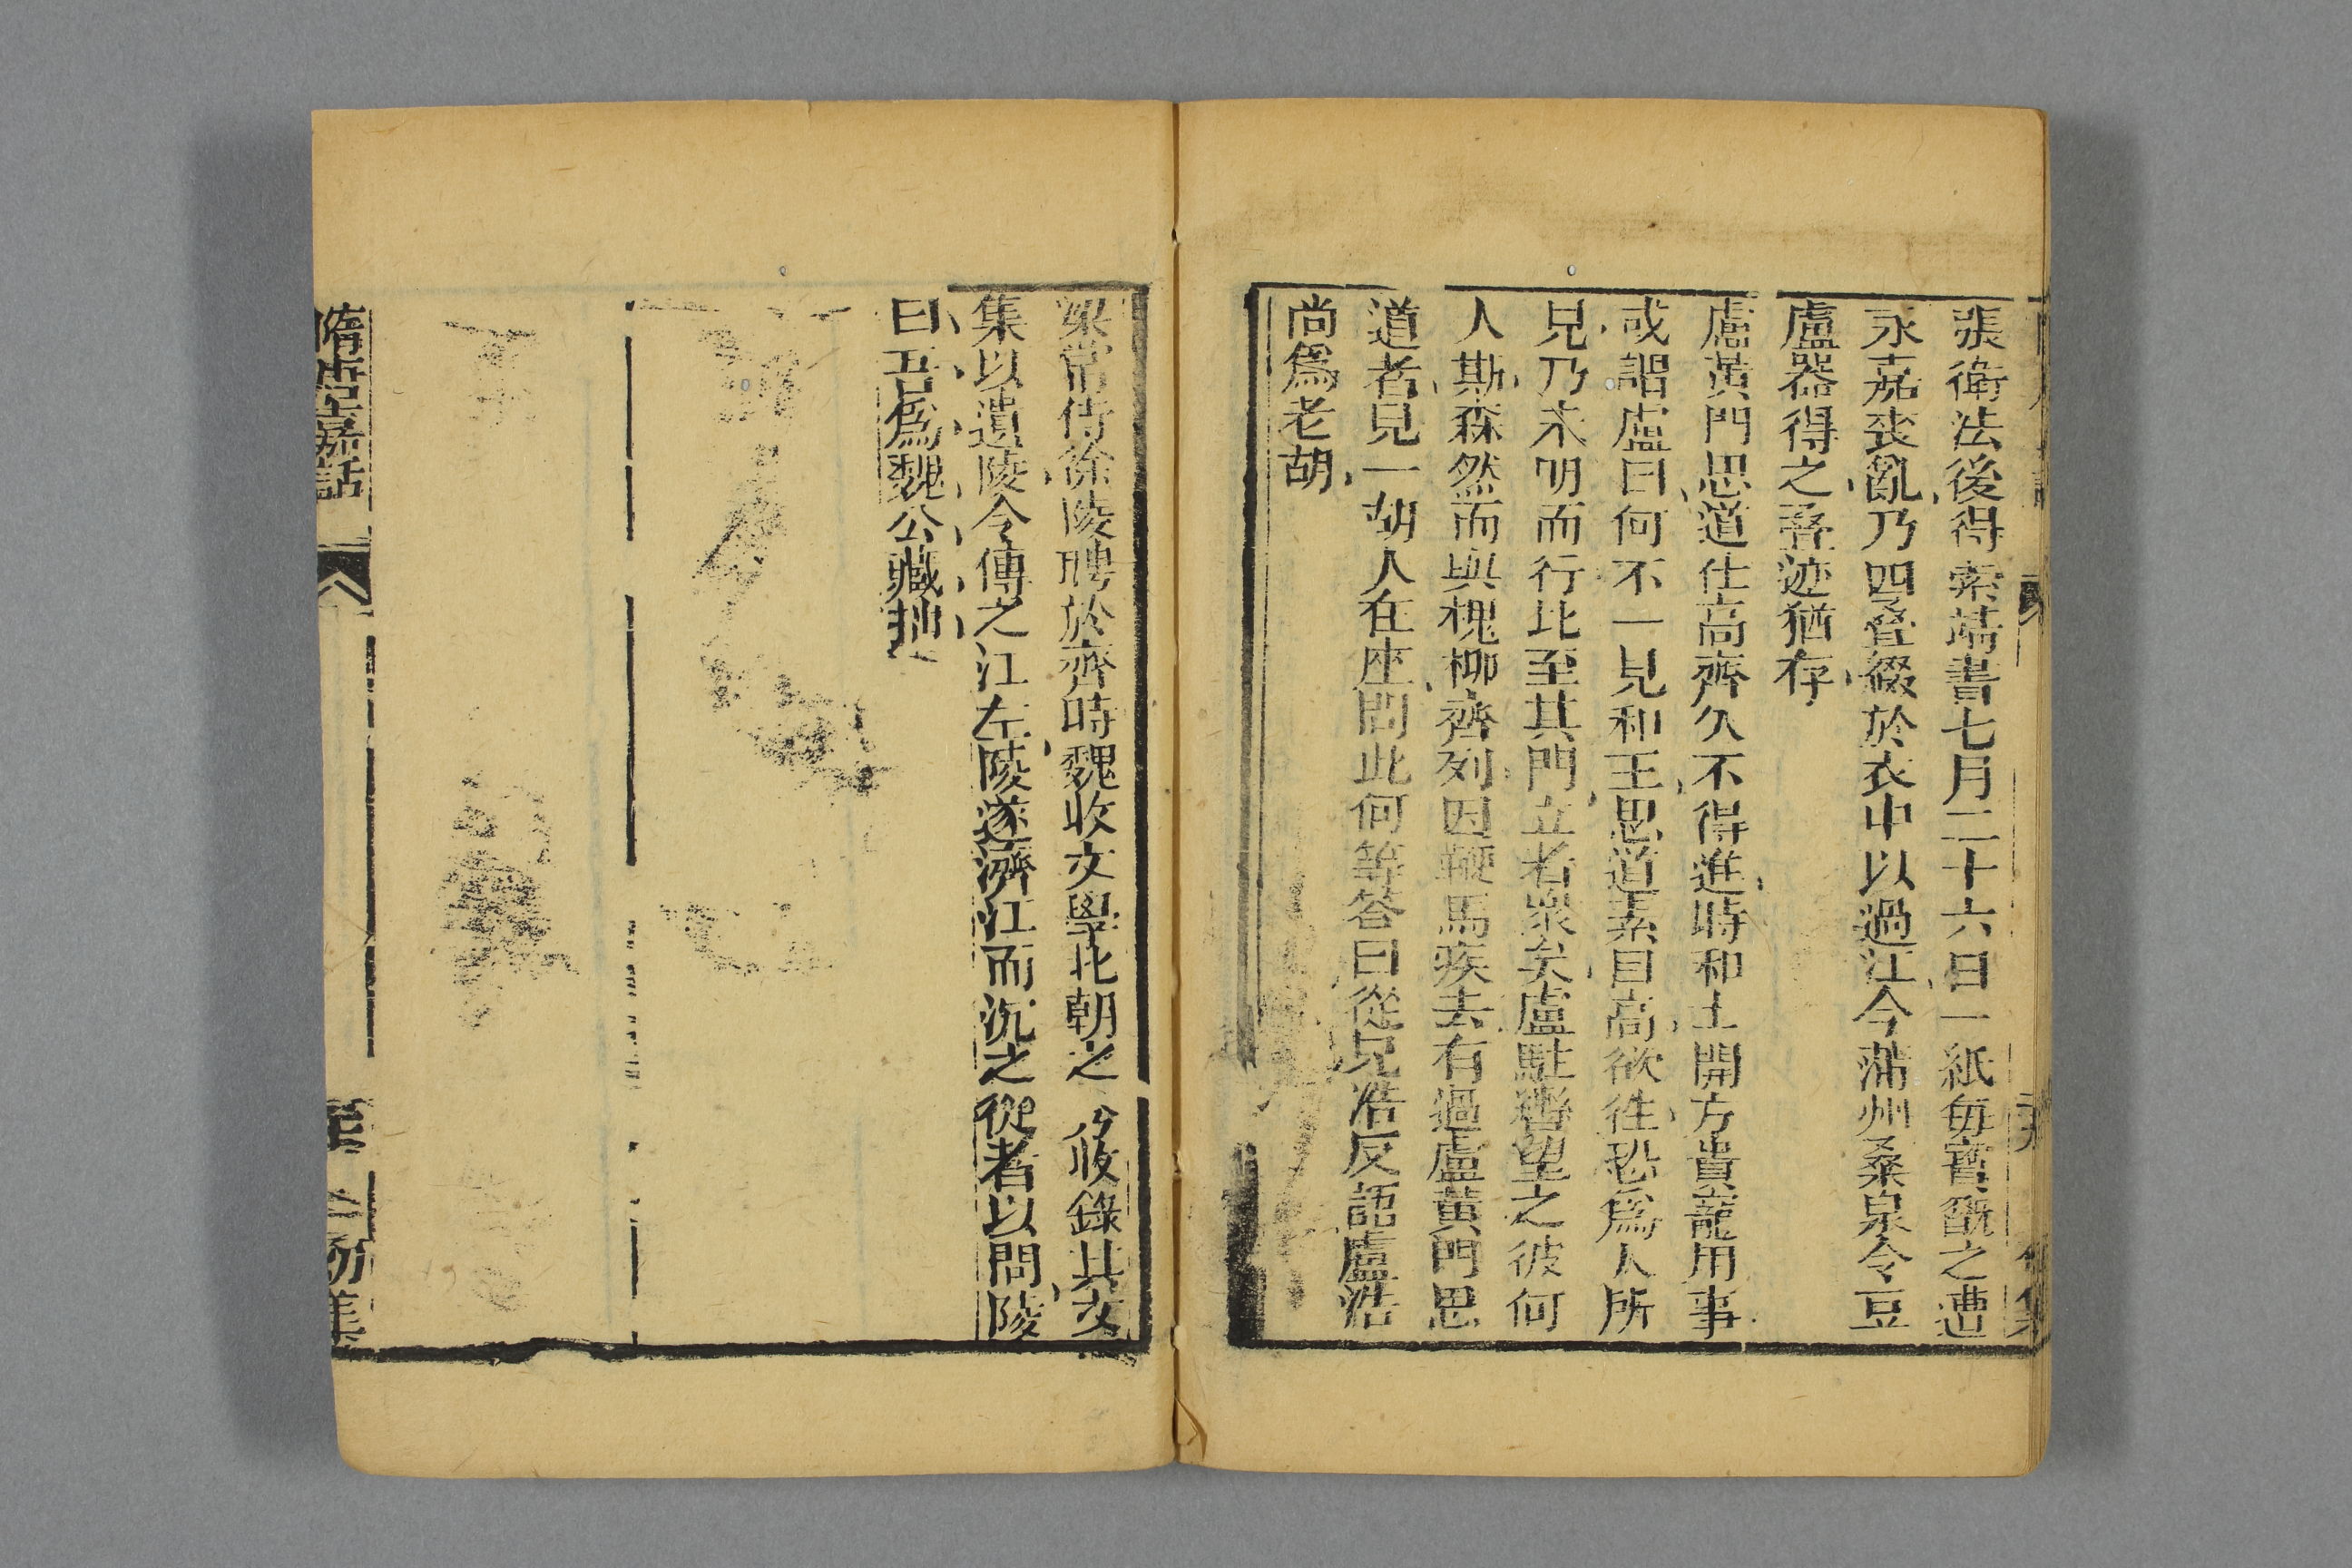 張衛法後得索靖書七月二十六日一紙每寶翫之遭
永嘉喪亂乃四疊綴於衣中以過江今蒲州桑泉令豆
盧器得之疊迹猶存
盧黃門思道仕高齊久不得進時和士開方貴寵用事
或謂盧曰何不一見和王思道素自高欲往恐為人所
見乃未明而行比至其門立者眾矣盧駐轡望之彼何
人斯森然而與槐柳齊列因鞭馬疾去有過盧黃門思
道者見一胡人在座問此何等答曰從兄浩反語盧浩
尚爲老胡
梁常侍徐陵聘於齊時魏收文學北朝之 收錄其文
集以遺陵令傳之江左陵遂濟江而沉之從者以問陵
曰吾爲魏公藏拙
隋唐嘉話